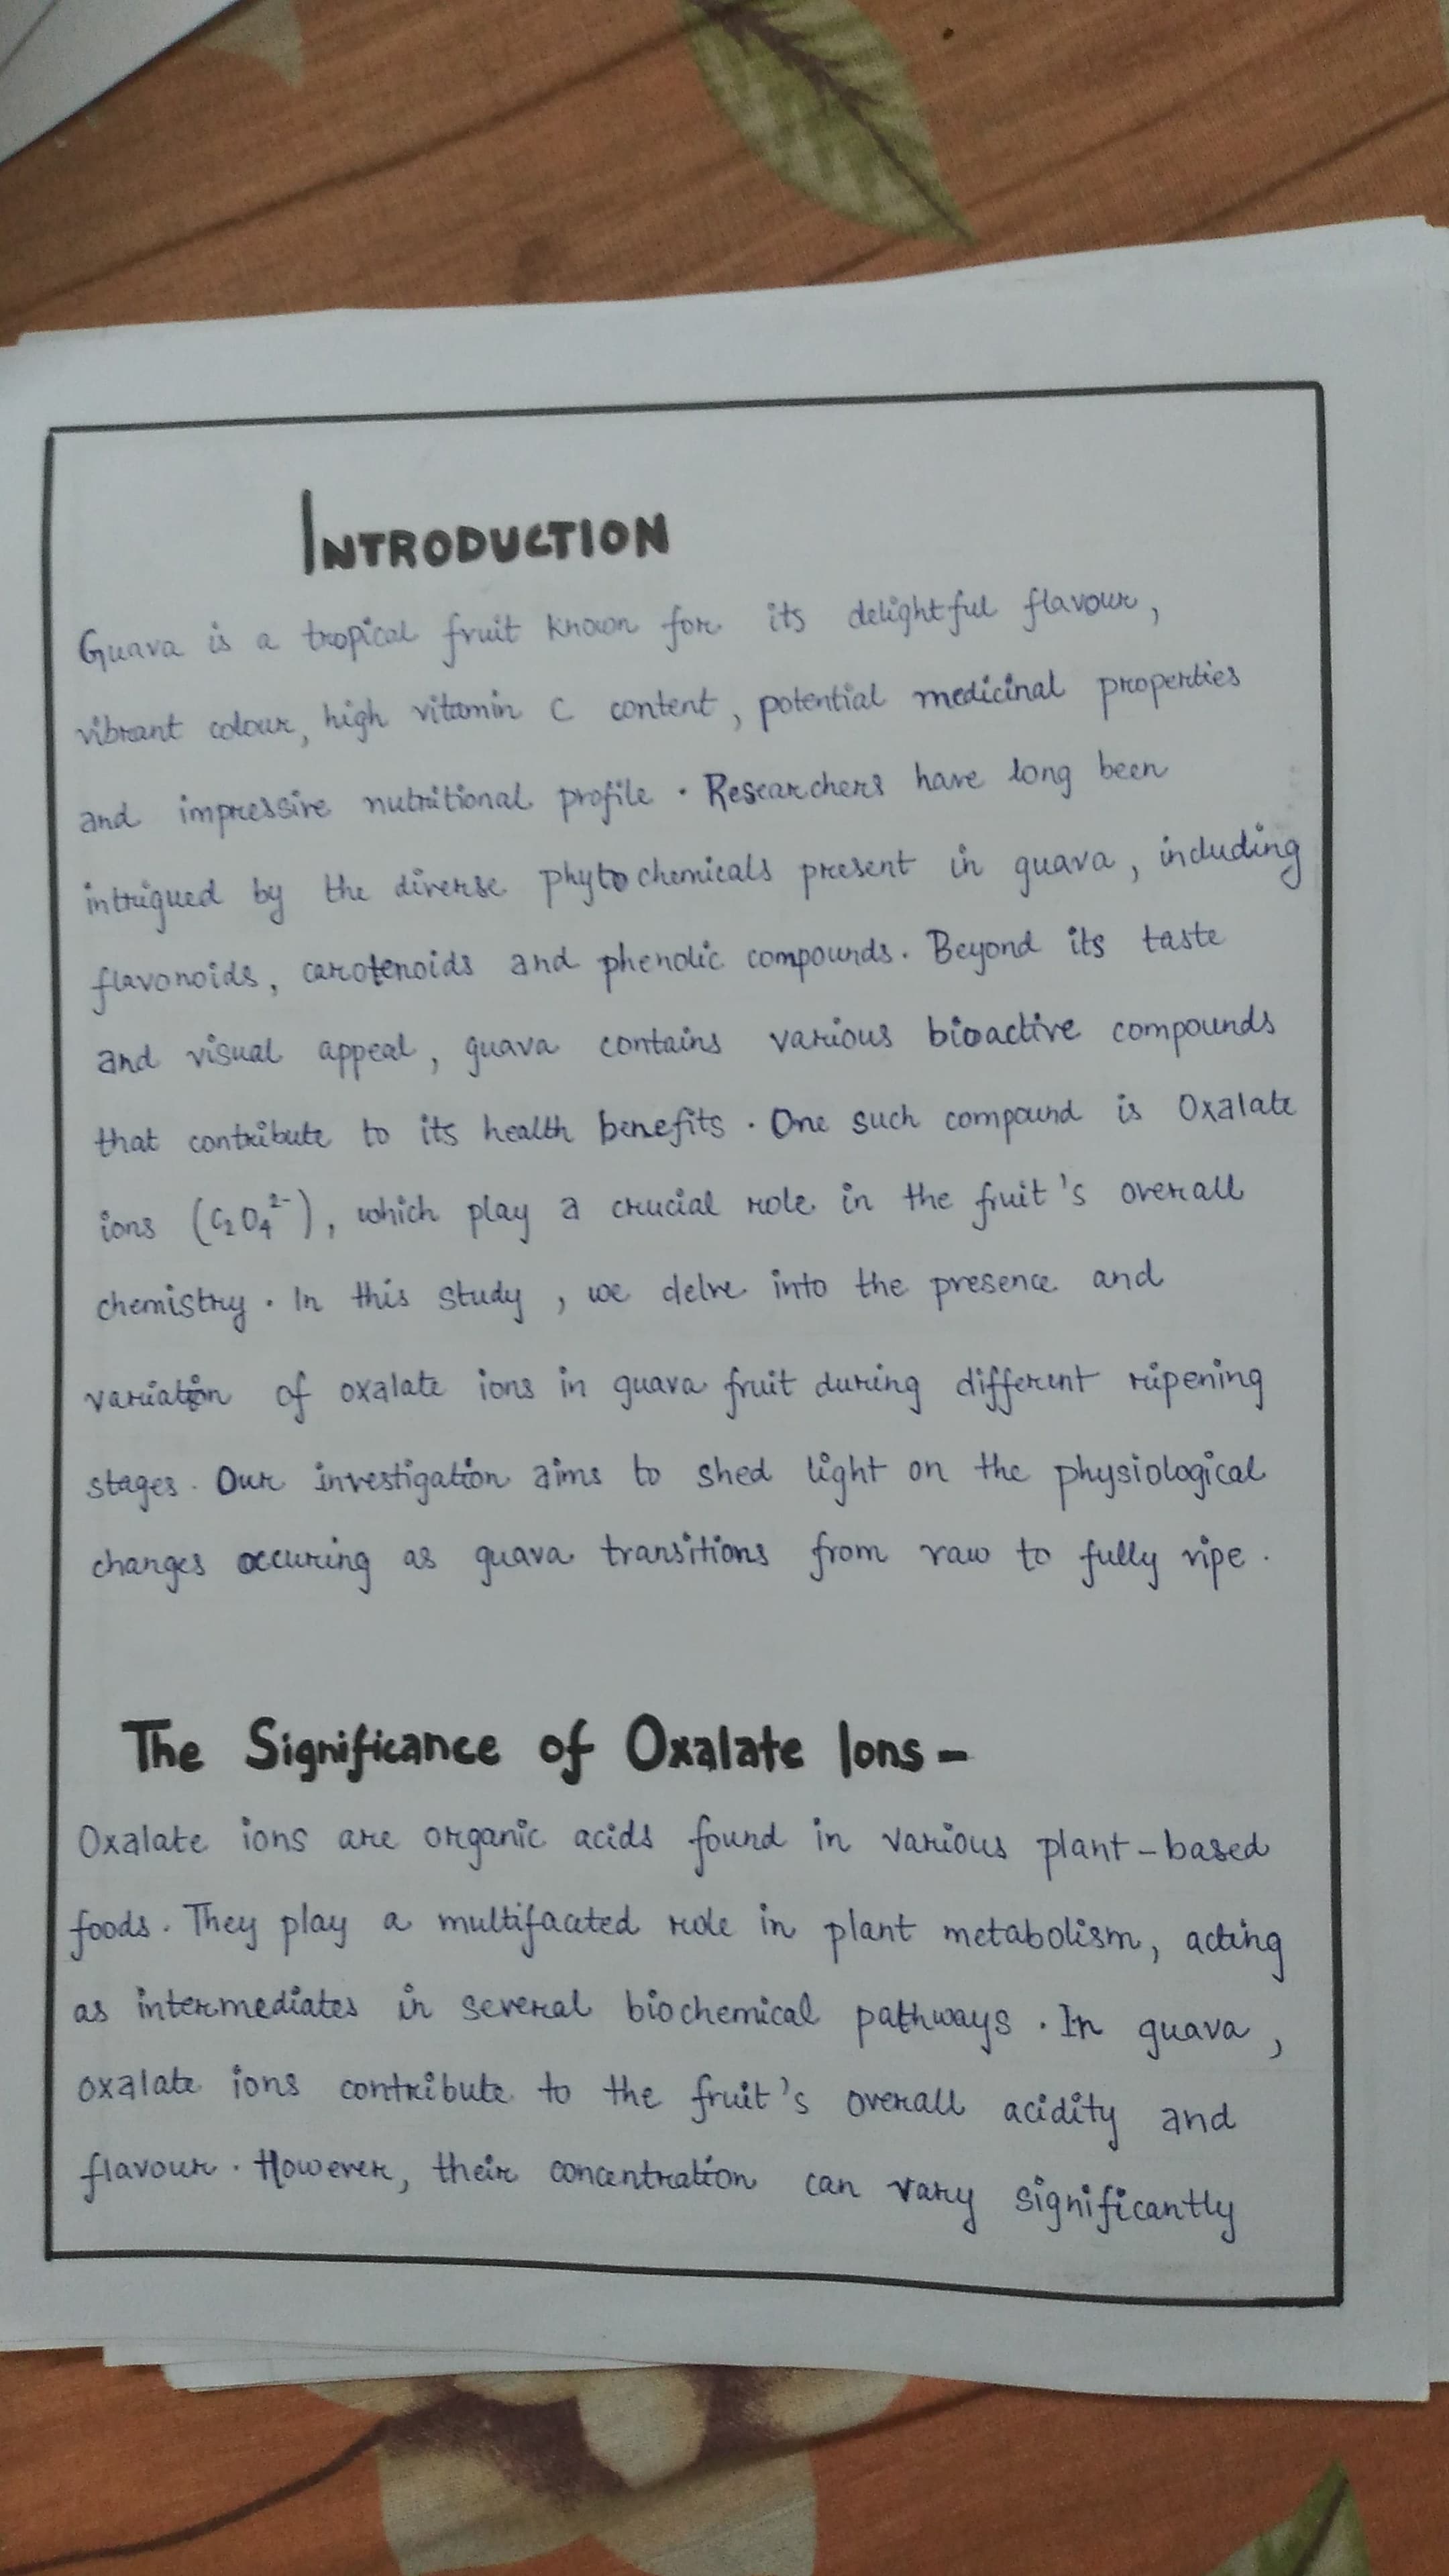 INTRODUCTION
Guava is a tropical fruit known for its delightful flavour,
vibrant colour, high vitamin C content, potential medicinal properties
and impressive nutritional profile. Researchers have long been
intrigued by the diverse phytochemicals present in guava, including
flavonoids, carotenoids and phenolic compounds. Beyond its taste
and visual appeal, guava contains various bioactive compounds
that contribute to its health benefits. One such compound is Oxalate
ions (C₂O₄²⁻), which play a crucial role in the fruit's overall
chemistry. In this study, we delve into the presence and
variation of oxalate ions in guava fruit during different ripening
stages. Our investigation aims to shed light on the physiological
changes occuring as guava transitions from raw to fully ripe.
The Significance of Oxalate Ions-
Oxalate ions are organic acids found in various plant-based
foods. They play a multifaceted role in plant metabolism, acting
as intermediates in several biochemical pathways. In guava,
oxalate ions contribute to the fruit's overall acidity and
flavour. However, their concentration can vary significantly